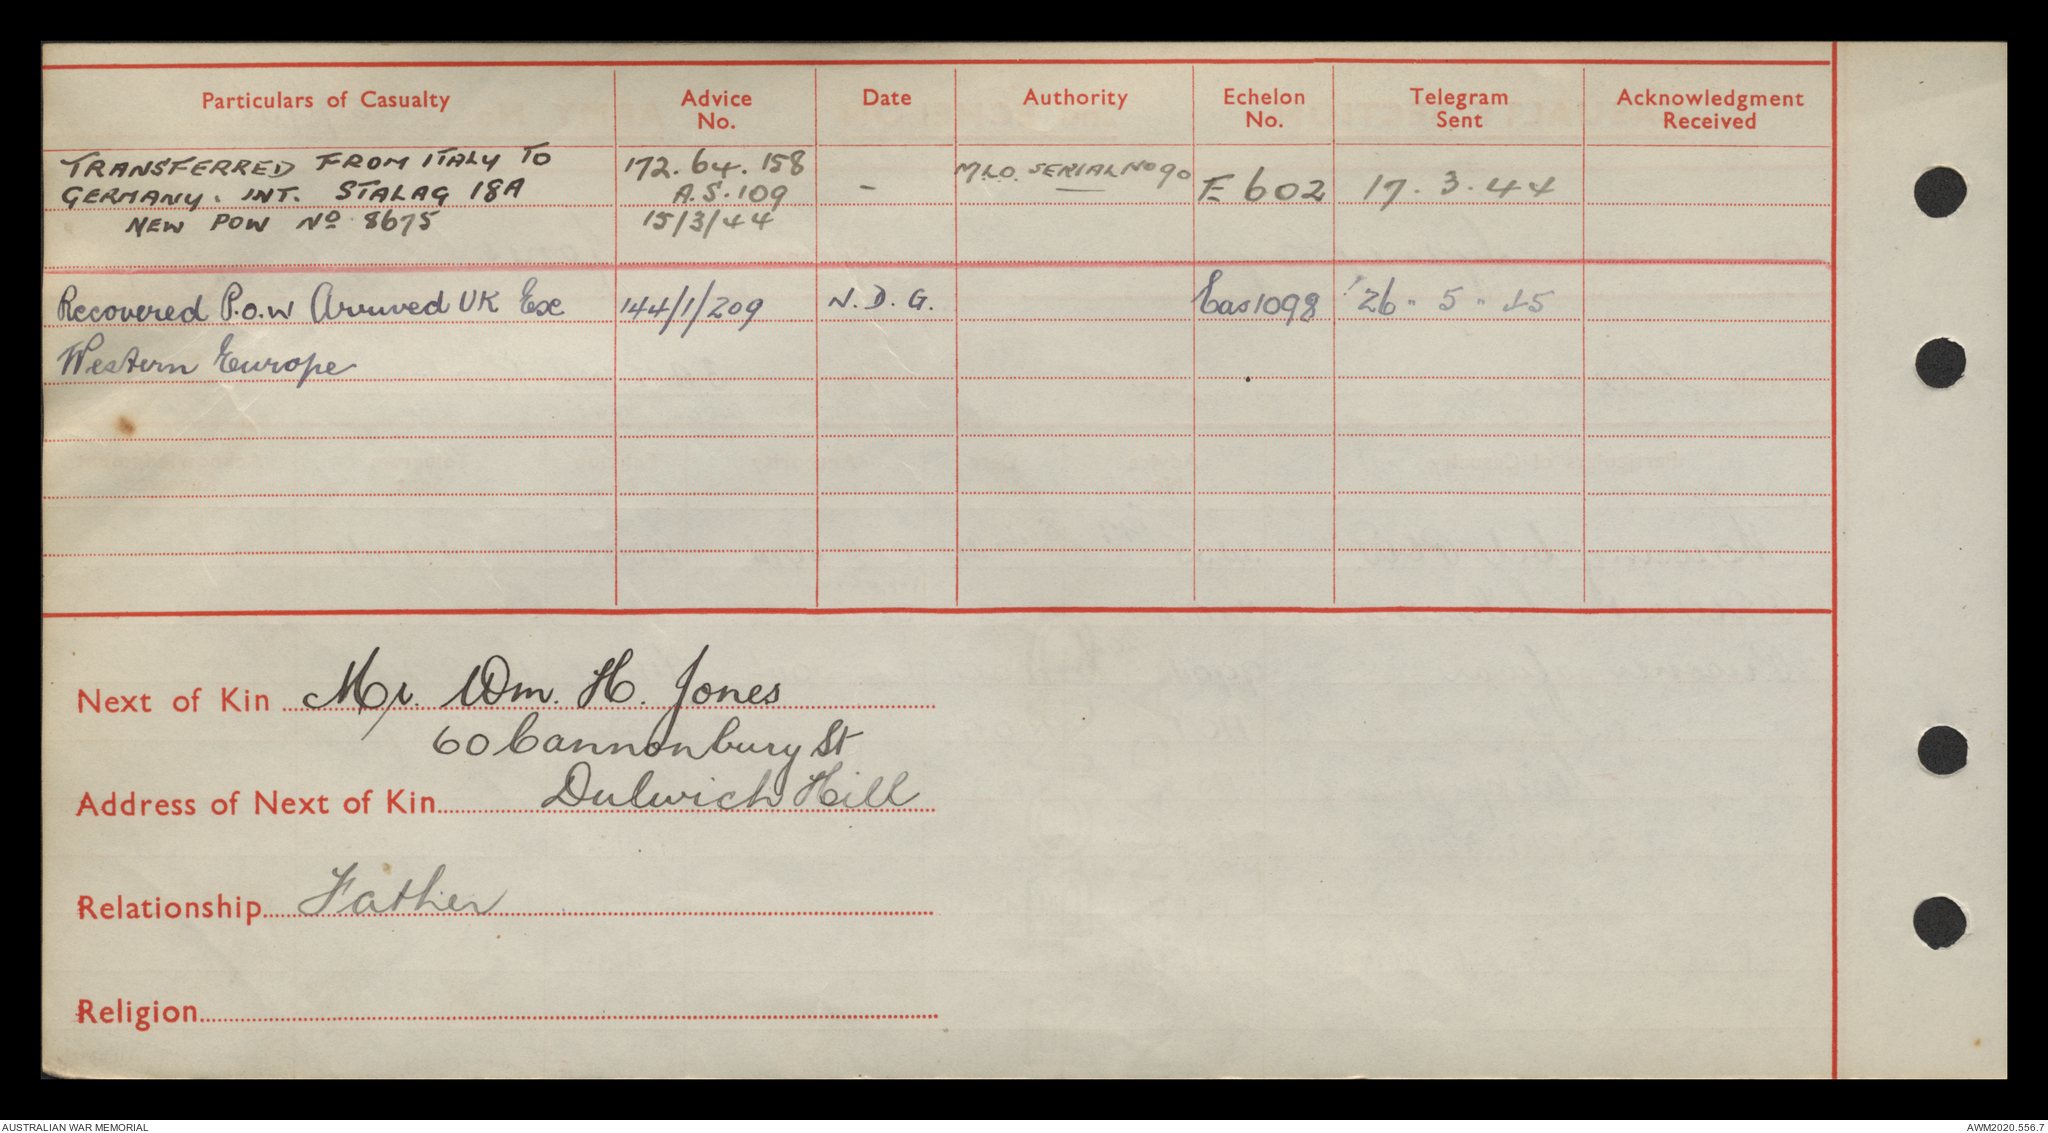 Particulars of Casualty Advice No. Date Authority Echelon No. Telegram Sent Acknowledgment Received
TRANSFERRED FROM ITALY TO 172.64.158 M.L.O. SERIAL No 90
GERMANY. INT. STALAG 18A A.S.109 – E 602 17.3.44
NEW POW No 8675 15/3/44
Recovered P.o.W Arrived UK Exe 144/1/209 N.D.G. Eas1098 26" 5" 45
Western Europe
Next of Kin Mr. Wm. H. Jones
60 Cannonbury St
Address of Next of Kin Dulwich Hill
Relationship Father
Religion
AUSTRALIAN WAR MEMORIAL AWM2020.556.7